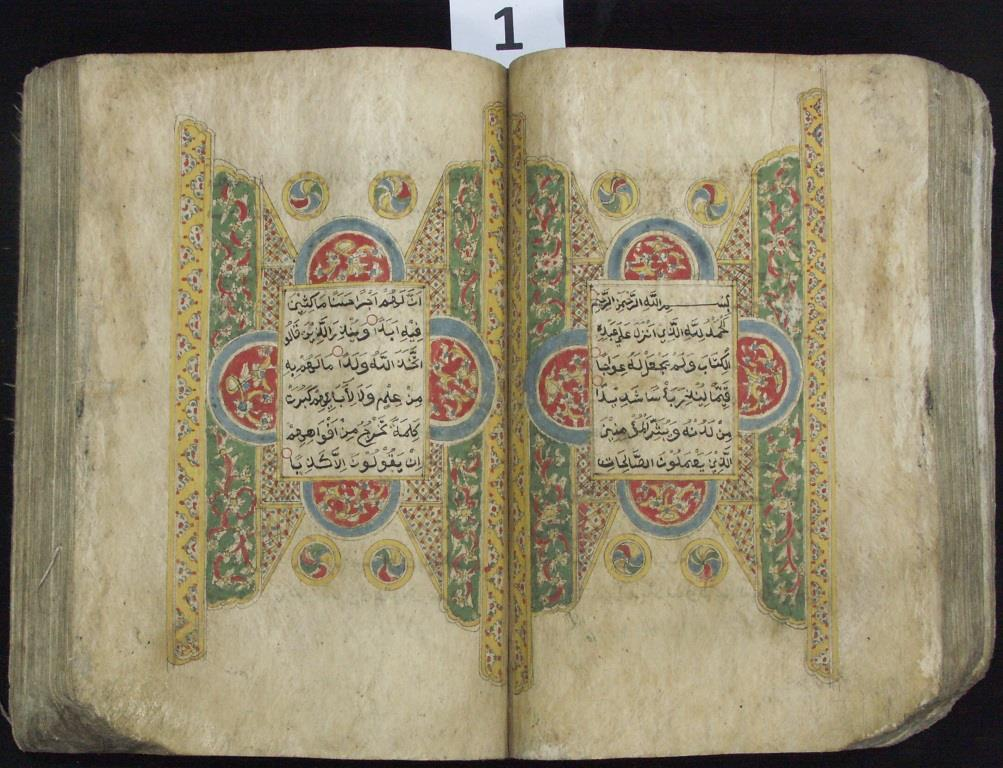 1
بسم الله الرحمن الرحيم
الحمد لله الذي انزل على عبده
الكتاب ولم يجعل له عوجا
قيما لينذر بأسا شديدا
من لدنه ويبشر المؤمنين
الذين يعملون الصالحات
ان لهم اجرا حسنا ماكثين
فيه ابدا وينذر الذين قالوا
اتخذ الله ولدا مالهم به
من علم ولا لأبايهم كبرت
كلمة تخرج من افواههم
ان يقولون الا كذبا